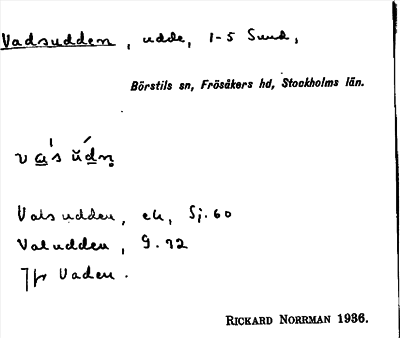 Vadsudden, udde, 1-5 Sund,
Börstils sn, Frösåkers hd, Stockholms län.
Valsudden, ek, Sj. 60
Valudden, G. 92
Jfr Vaden.
RICKARD NORRMAN 1936.